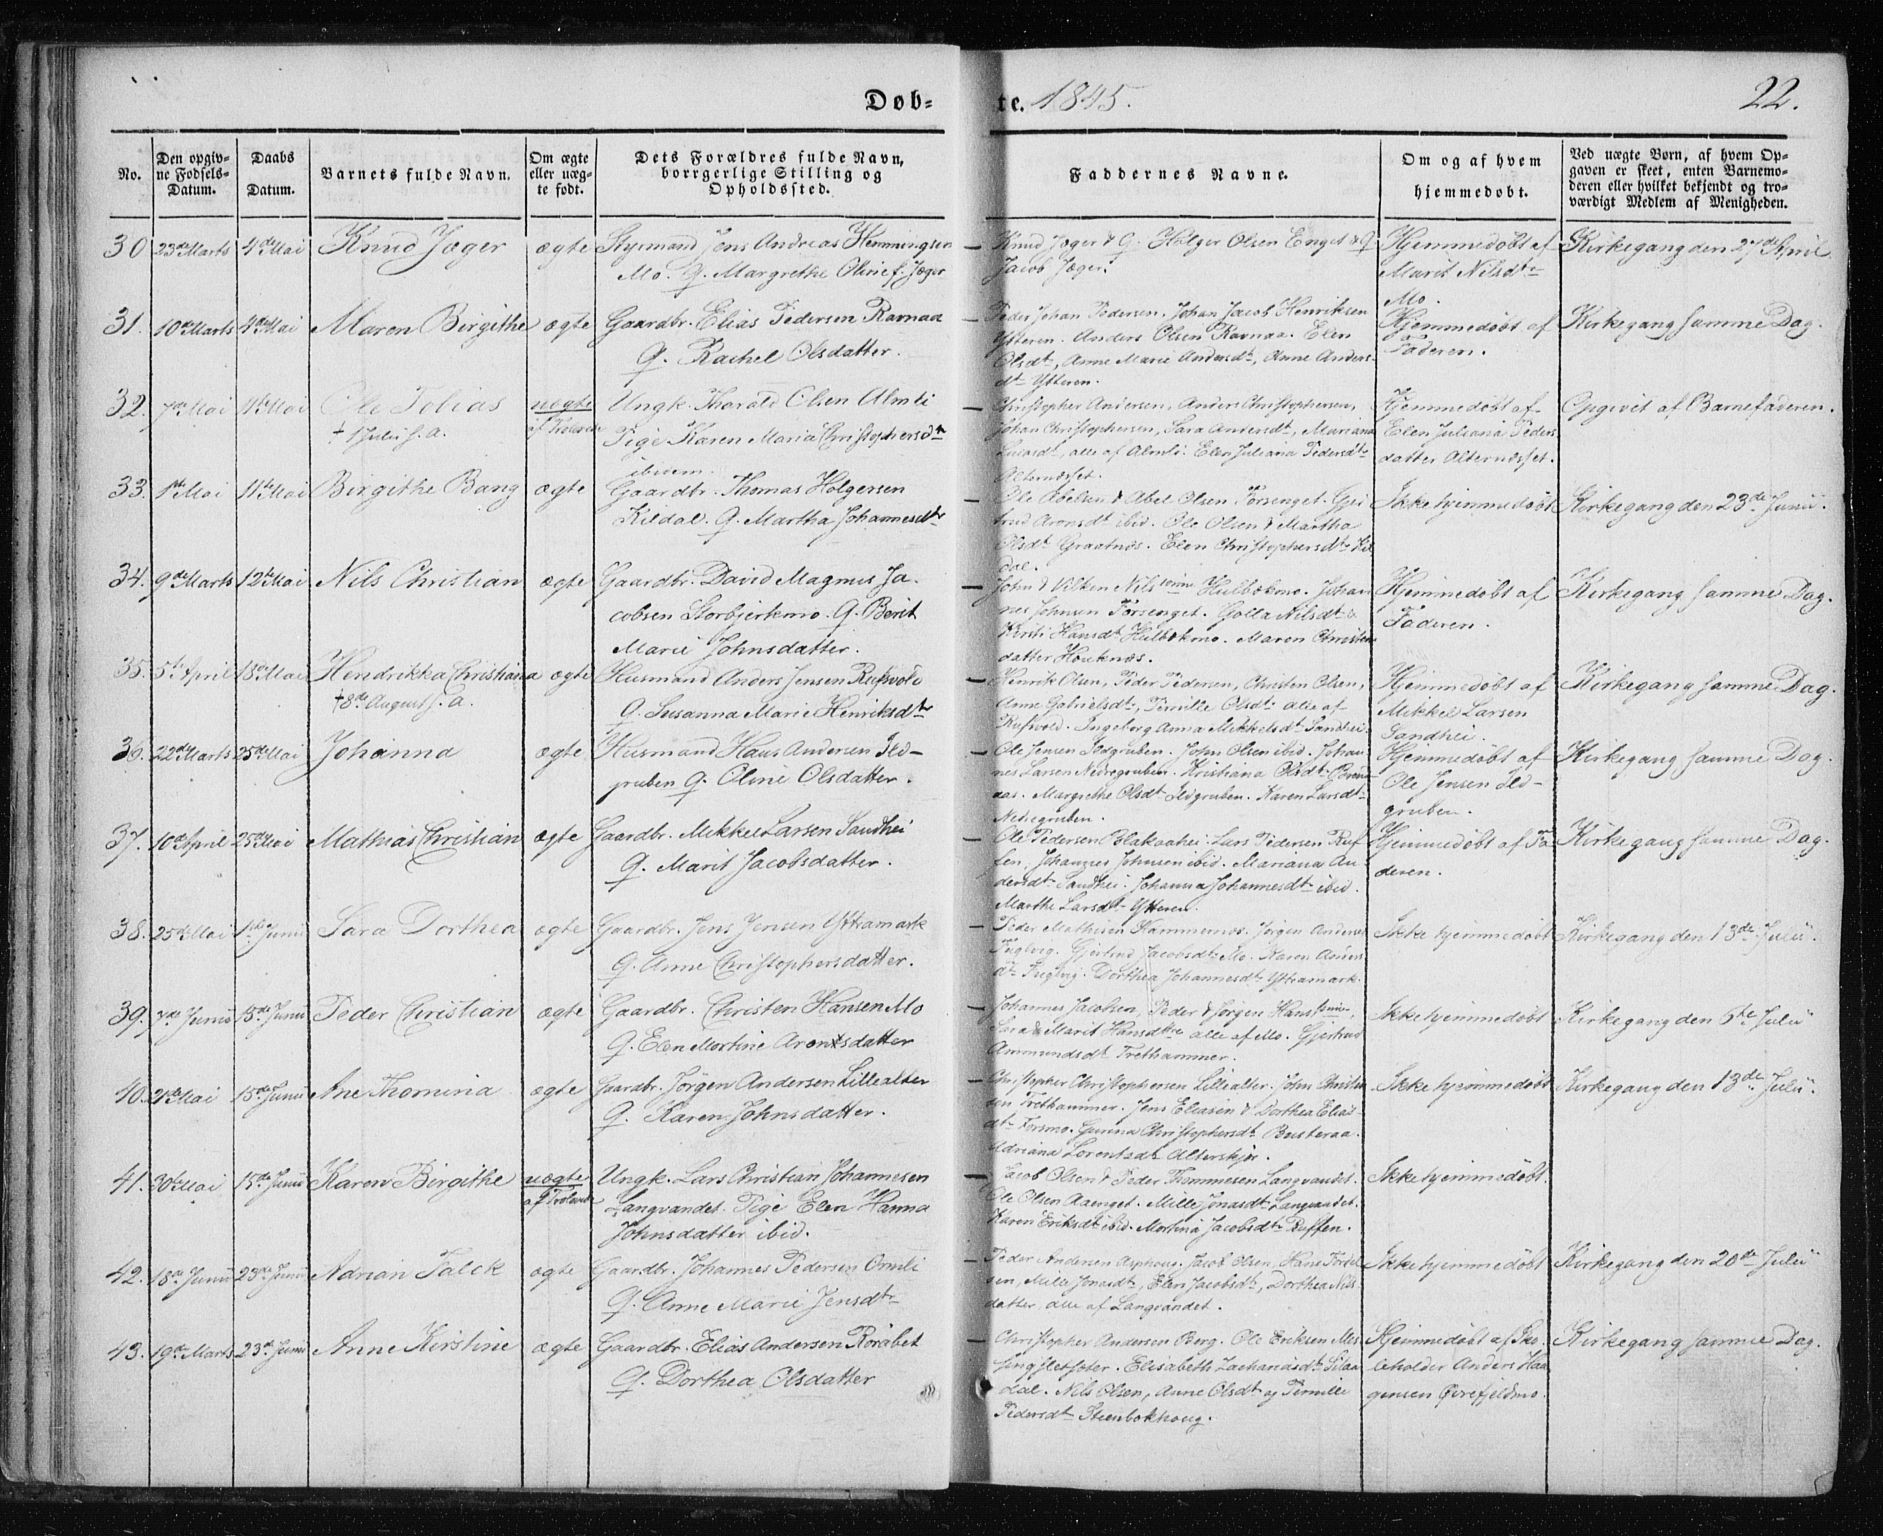 Døb-
te. 1845.
22.
No.
Den opgiv-
ne Fødsels-
Datum.
Daabs
Datum.
Barnets fulde Navn.
Om ægte
eller uæg-
te født.
Dets Forældres fulde Navn,
borgerlige Stilling og
Opholdssted.
Faddernes Navne.
Om og af hvem
hjemmedøbt.
Ved uægte Børn, af hvem Op-
gaven er skeet, enten Barnemo-
deren eller hvilket bekjendt og tro-
værdigt Medlem af Menigheden.
30 23de Marts 4de Mai Knud Jæger ægte Styrmand Jens Andreas Hemmingsen
Mo. Q. Margrethe Oline f. Jæger
Knud Jæger & Q. Holger Olsen Enget & Q.
Jacob Jæger.
Hjemmedøbt af
Marit Nilsdtr
Mo.
Kirkegang den 27de April.
31. 10de Marts 4de Mai Maren Birgithe ægte Gaardbr. Elias Pedersen Ravnaa
Q. Rachel Olsdatter.
Peder Johan Pedersen, Johan Jacob Henriksen
Ytteren. Anders Olsen Ravnaa. Elen
Olsdt, Anne Marie Andersdt, Anne Anders-
dt Ytteren.
Hjemmedøbt af
Faderen.
Kirkegang samme Dag.
32. 7de Mai 11te Mai Ole Tobias uægte Ungk. Tharald Olsen Almli
† 1 Juli s. a.
Pige Karen Maria Christophersdtr
ibidem.
Christopher Andersen, Anders Christophersen,
Johan Christophersen, Sara Andersdt, Mariana
alle af Almli. Elen Juliana Pedersdt
Alternæsset.
Hjemmedøbt af
Elen Juliana Peders-
datter Alternæsset.
Opgivet af Barnefaderen.
33. 1ste Mai 11te Mai Birgithe Bang ægte Gaardbr. Thomas Holgersen
Kildal. Q. Martha Johannesdtr
Ole Abelsen & Abel Olsen Forsenget. Gjer-
trud Aronsdt ibid. Ole Olsen & Martha
Olsdt Graatnæs. Elen Christophersdt Kil-
dal.
Ikke hjemmedøbt
Kirkegang den 23de Junii.
34. 9de Marts 12te Mai Nils Christian ægte Gaardbr. David Magnus Ja-
cobsen Storbjerkmo. Q. Berit
Marie Johnsdatter.
John & Vilken Nilssønner Hulbækmo. Johan-
nes Johnsen Forsenget. Golla Nilsdt &
Kirsti Hansdt Hulbækmo. Maren Christens-
datter Houknæs.
Hjemmedøbt af
Faderen.
Kirkegang samme Dag.
35. 5te April 18de Mai Hendrikka Christiana ægte Husmand Anders Jensen Rufsvold
† 8de August s. a.
Q. Susanna Marie Henriksdtr
Henrik Olsen, Peder Pedersen, Christen Olsen,
Anne Gabrielsdt, Pernille Olsdt alle af
Rufsvold. Ingeborg Anna Mikkelsdt Sandhei.
Hjemmedøbt af
Mikkel Larsen
Sandhei.
Kirkegang samme Dag.
36. 22de Marts 25de Mai Johanna ægte Husmand Hans Andersen Ild-
gruben Q. Oline Olsdatter.
Ole Jensen Ildgruben. John Olsen ibid. Johan-
nes Larsen Nedregruben. Kristiana Olsdt
Margrethe Olsdt Ildgruben. Karen Larsdt
Nedregruben.
Hjemmedøbt af
Ole Jensen Ild-
gruben.
Kirkegang samme Dag.
37. 10de April 25de Mai Mathias Christian ægte Gaardbr. Mikkel Larsen Sandhei
Q. Marit Jacobsdatter.
Ole Pedersen Blakaahei. Lars Pedersen Ruf-
fen, Johannes Johnsen ibid. Mariana An-
dersdt Sandhei. Johanna Johannesdt ibid.
Marthe Larsdt Ytteren.
Hjemmedøbt af Fa-
deren.
Kirkegang samme Dag.
38. 25de Mai 1ste Junii Sara Dorthea ægte Gaardbr. Jens Jensen Yttramark
Q. Anne Christophersdatter.
Peder Mathisen Hammernæs. Jørgen Andersen
Tingberg. Gjertrud Jacobsdt Mo. Karen Anders-
dt Dorthea Johannesdt Yttramark.
Ikke hjemmedøbt
Kirkegang den 13de Julii.
39. 7de Junii 15de Junii Peder Christian ægte Gaardbr. Christen Hansen Mo
Q. Elen Martine Aronsdatter
Johannes Jacobsen, Peder & Jørgen Hanssønner,
Sara & Marit Hansdtre alle af Mo. Gjertrud
Ammundsdt Trethammer.
Ikke hjemmedøbt
Kirkegang den 6te Julii
40. Mai 15de Junii Ane Thomina ægte Gaardbr. Jørgen Andersen Lillealter
Q. Karen Johnsdatter.
Christopher Christophersen Lillealter. John Christen-
sen Trethammer. Jens Eliasen & Dorthea Elias-
dt Forsmo. Gurina Christophersdt Busteraa.
Adriana Lorentsdt Alterskjær.
Ikke hjemmedøbt
Kirkegang den 13de Julii.
41. 30te Mai 15de Junii Karen Birgithe uægte Ungk. Lars Christian Johannesen
Langvandet. Pige Elen Hanna
Johnsdatter ibid.
Jacob Olsen & Peder Thommesen Langvandet.
Ole Olsen Aaenget. Mille Jonasdt Langvandet.
Karen Eriksdt ibid. Martina Jacobsdt Ruffen.
Ikke hjemmedøbt.
42. 18de Junii 23de Junii Adrian Falck ægte Gaardbr. Johannes Pedersen Ornli
Q. Anne Marie Jensdtr
Peder Andersen Asphoug. Jacob Olsen, Hans Peder-
sen, Mille Jonasdt, Elen Jacobsdt, Dorthea Nils-
datter, alle af Langvandet.
Ikke hjemmedøbt
Kirkegang den 20de Julii
43. 19de Marts 23de Junii Anne Kirstine ægte Gaardbr. Elias Andersen Rørabet
Q. Dorthea Olsdatter
Christopher Andersen Berg. Ole Eriksen Mes-
singsletfoter. Elisabeth Zachariasdt Silaa-
dal. Nils Olsen, Anne Olsdt og Pernille
Pedersdt Steenbokhoug.
Hjemmedøbt af Sko-
leholder Anders Haa-
gensen Øvrefjeldmo.
Kirkegang samme Dag.